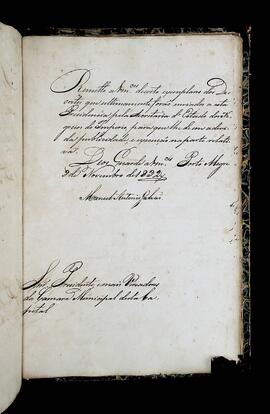 Remetto a Vm.ces dusoto exemplares dos De
cretos, que ultimamente forão enviados a esta
Presidencia pela Secretaria d'Estado dos Ne
gocios do Imperio, para que lhes de a devi
da publicidade, e execução na parte relati
va. Deos Guarde a Vm.ces Porto Alegre
de Novembro de 1832,
Manoel Antonio Galvão
Snr. Presidente, e mais Vereadores
da Camara Municipal desta Ca
pital